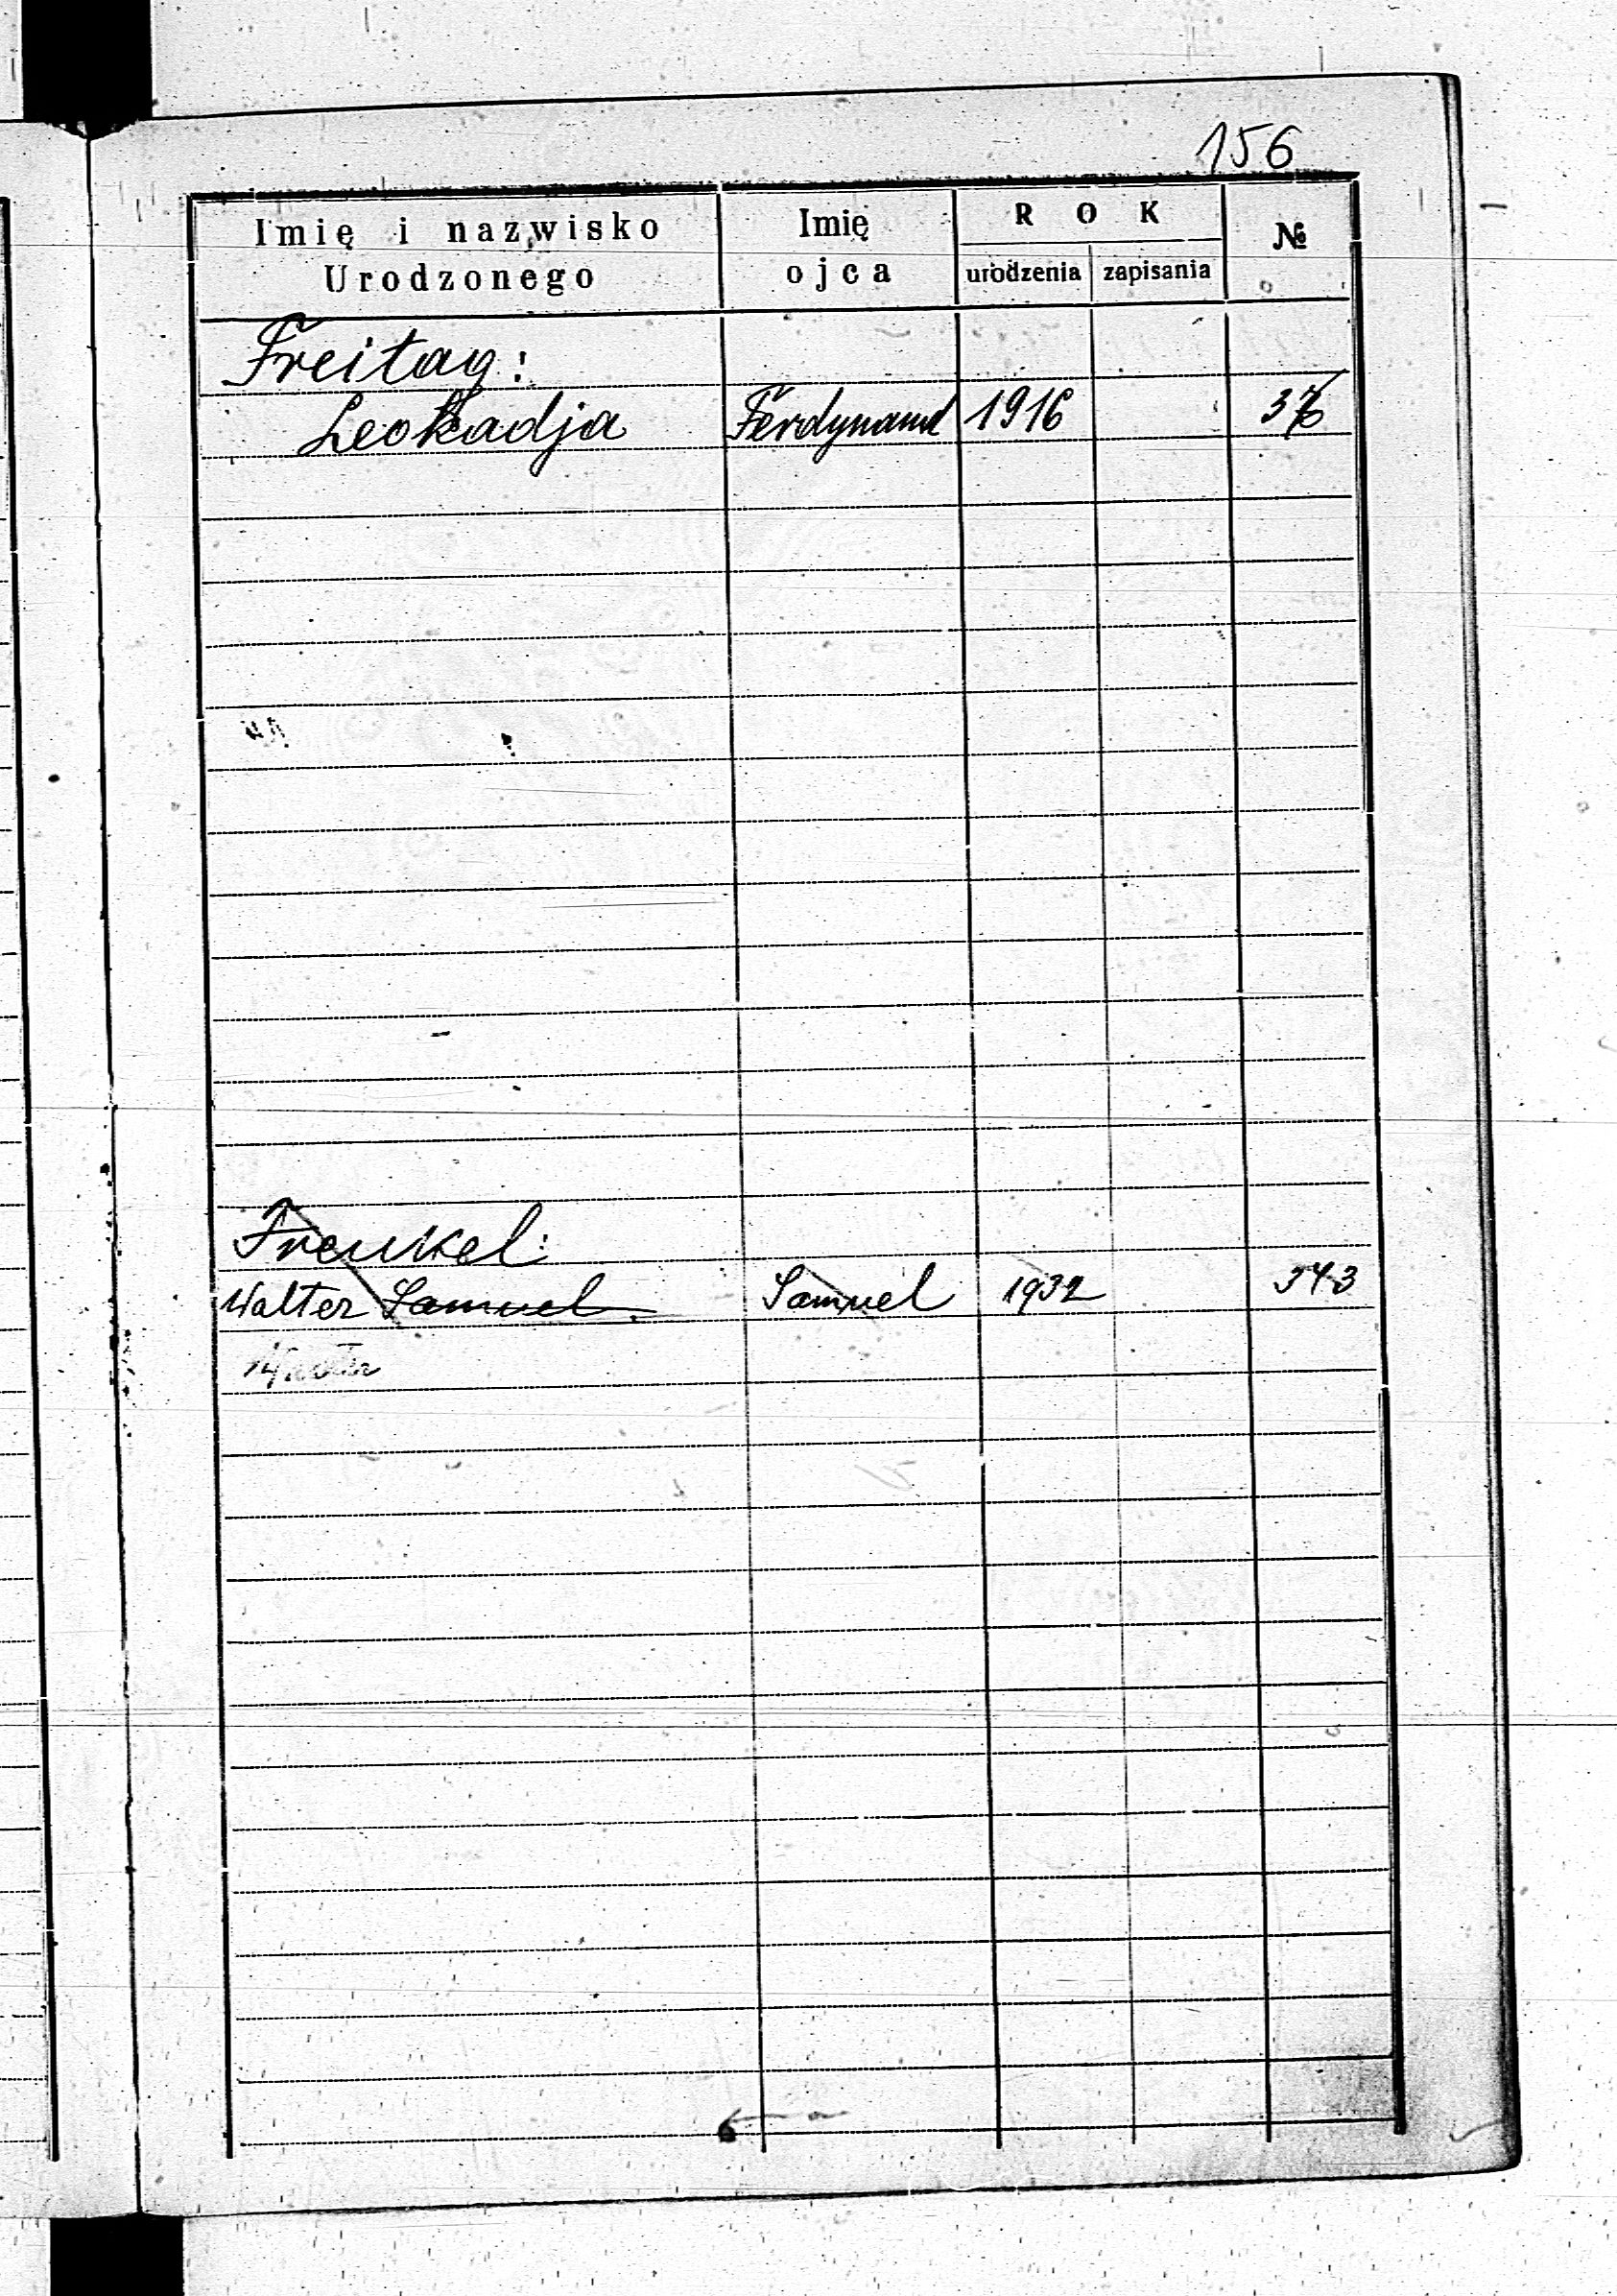 156
Imię i nazwisko Urodzonego Imię ojca ROK urodzenia zapisania №
Freitag:
Leokadja Ferdynand 1916
Frenkel:
Walter Samuel Samuel 1932 343
Walter